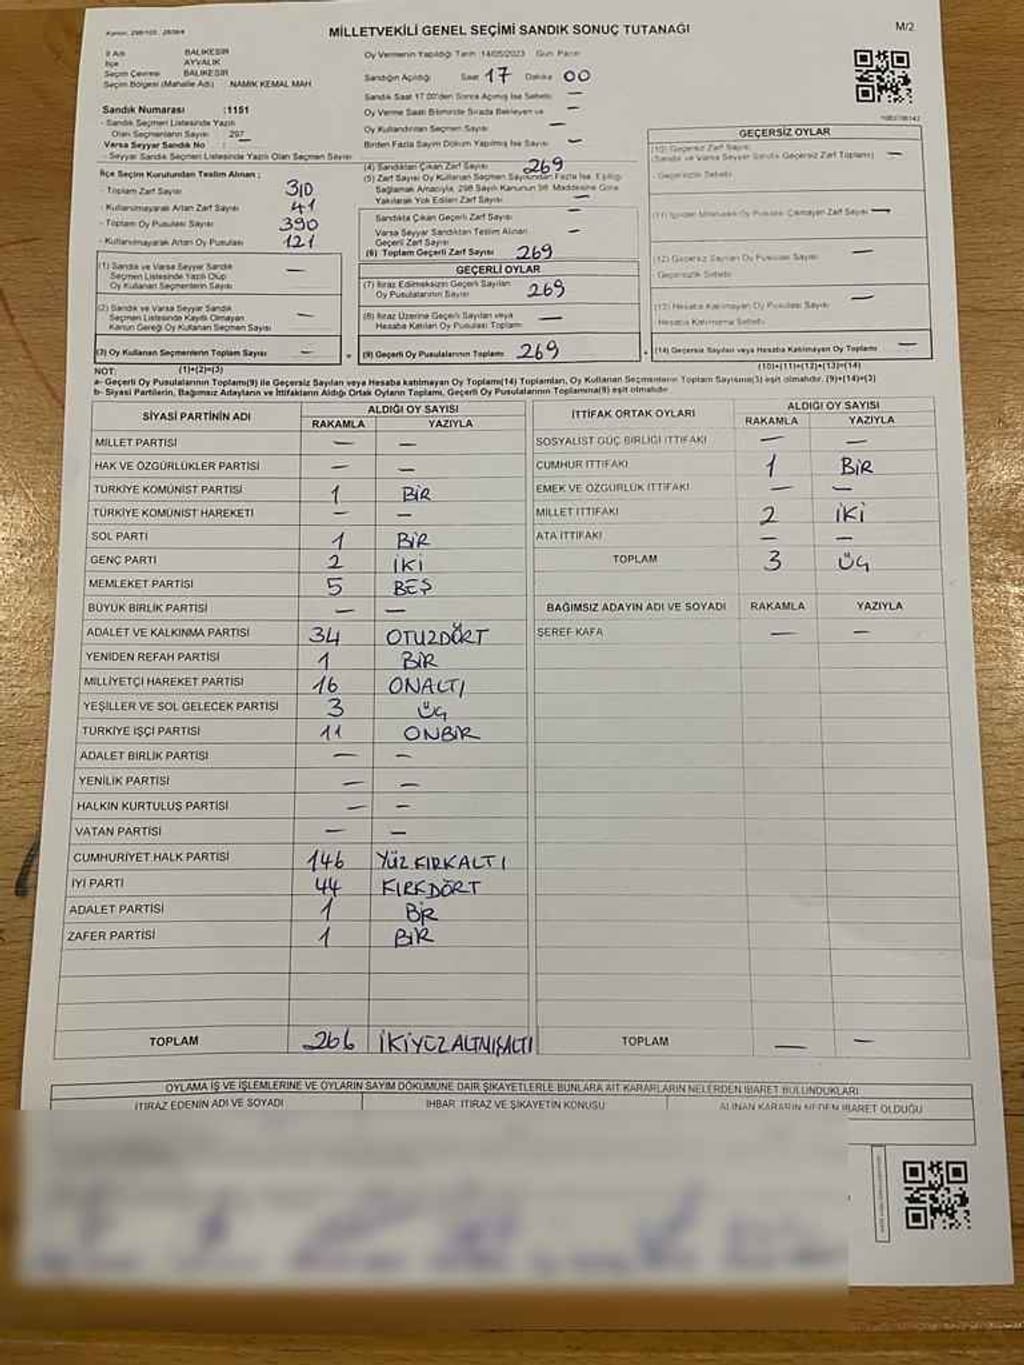 MİLLETVEKİLİ GENEL SEÇİMİ SANDIK SONUÇ TUTANAĞI
M/2
İl Adı BALIKESİR
İlçe AYVALIK
Seçim Çevresi BALIKESİR
Seçim Bölgesi (Mahalle Adı) NAMIK KEMAL MAH
Sandık Numarası :1151
- Sandık Seçmen Listesinde Yazılı
Olan Seçmenlerin Sayısı : 297
Varsa Seyyar Sandık No : —
- Seyyar Sandık Seçmen Listesinde Yazılı Olan Seçmen Sayısı
İlçe Seçim Kurulundan Teslim Alınan ;
- Toplam Zarf Sayısı 310
- Kullanılmayarak Artan Zarf Sayısı 41
- Toplam Oy Pusulası Sayısı 390
- Kullanılmayarak Artan Oy Pusulası 121
(1) Sandık ve Varsa Seyyar Sandık
Seçmen Listesinde Yazılı Olup
Oy Kullanan Seçmenlerin Sayısı —
(2) Sandık ve Varsa Seyyar Sandık
Seçmen Listesinde Kayıtlı Olmayan
Kanun Gereği Oy Kullanan Seçmen Sayısı —
(3) Oy Kullanan Seçmenlerin Toplam Sayısı —
(1)+(2)=(3)
Oy Vermenin Yapıldığı Tarih :14/05/2023 Gün: Pazar
Sandığın Açıldığı Saat 17 Dakika 00
Sandık Saat 17.00'den Sonra Açılmış İse Sebebi —
Oy Verme Saati Bitiminde Sırada Bekleyen ve —
Oy Kullandırılan Seçmen Sayısı —
Birden Fazla Sayım Döküm Yapılmış İse Sayısı —
(4) Sandıktan Çıkan Zarf Sayısı 269
(5) Zarf Sayısı Oy Kullanan Seçmen Sayısından Fazla İse, Eşitliği
Sağlamak Amacıyla, 298 Sayılı Kanunun 98. Maddesine Göre
Yakılarak Yok Edilen Zarf Sayısı —
Sandıkta Çıkan Geçerli Zarf Sayısı —
Varsa Seyyar Sandıktan Teslim Alınan
Geçerli Zarf Sayısı —
(6) Toplam Geçerli Zarf Sayısı 269
GEÇERLİ OYLAR
(7) İtiraz Edilmeksizin Geçerli Sayılan
Oy Pusulalarının Sayısı 269
(8) İtiraz Üzerine Geçerli Sayılan veya
Hesaba Katılan Oy Pusulası Toplamı —
(9) Geçerli Oy Pusulalarının Toplamı 269
GEÇERSİZ OYLAR
(10) Geçersiz Zarf Sayısı
(Sandık ve Varsa Seyyar Sandık Geçersiz Zarf Toplamı) —
- Geçersizlik Sebebi
(11) İçinden Milletvekili Oy Pusulası Çıkmayan Zarf Sayısı —
(12) Geçersiz Sayılan Oy Pusulası Sayısı —
Geçersizlik Sebebi
(13) Hesaba Katılmayan Oy Pusulası Sayısı —
Hesaba Katılmama Sebebi
(14) Geçersiz Sayılan veya Hesaba Katılmayan Oy Toplamı —
(10)+(11)+(12)+(13)=(14)
NOT:
a- Geçerli Oy Pusulalarının Toplamı(9) ile Geçersiz Sayılan veya Hesaba katılmayan Oy Toplamı(14) Toplamları, Oy Kullanan Seçmenlerin Toplam Sayısına(3) eşit olmalıdır. (9)+(14)=(3)
b- Siyasi Partilerin, Bağımsız Adayların ve İttifakların Aldığı Ortak Oyların Toplamı, Geçerli Oy Pusulalarının Toplamına(9) eşit olmalıdır
SİYASİ PARTİNİN ADI ALDIĞI OY SAYISI
RAKAMLA YAZIYLA
MİLLET PARTİSİ — —
HAK VE ÖZGÜRLÜKLER PARTİSİ — —
TÜRKİYE KOMÜNİST PARTİSİ 1 BİR
TÜRKİYE KOMÜNİST HAREKETİ — —
SOL PARTİ 1 BİR
GENÇ PARTİ 2 İKİ
MEMLEKET PARTİSİ 5 BEŞ
BÜYÜK BİRLİK PARTİSİ — —
ADALET VE KALKINMA PARTİSİ 34 OTUZDÖRT
YENİDEN REFAH PARTİSİ 1 BİR
MİLLİYETÇİ HAREKET PARTİSİ 16 ONALTI
YEŞİLLER VE SOL GELECEK PARTİSİ 3 ÜÇ
TÜRKİYE İŞÇİ PARTİSİ 11 ONBİR
ADALET BİRLİK PARTİSİ — —
YENİLİK PARTİSİ — —
HALKIN KURTULUŞ PARTİSİ — —
VATAN PARTİSİ — —
CUMHURİYET HALK PARTİSİ 146 YÜZKIRKALTI
İYİ PARTİ 44 KIRKDÖRT
ADALET PARTİSİ 1 BİR
ZAFER PARTİSİ 1 BİR
TOPLAM 266 İKİYÜZALTMIŞALTI
İTTİFAK ORTAK OYLARI ALDIĞI OY SAYISI
RAKAMLA YAZIYLA
SOSYALİST GÜÇ BİRLİĞİ İTTİFAKI — —
CUMHUR İTTİFAKI 1 BİR
EMEK VE ÖZGÜRLÜK İTTİFAKI — —
MİLLET İTTİFAKI 2 İKİ
ATA İTTİFAKI — —
TOPLAM 3 ÜÇ
BAĞIMSIZ ADAYIN ADI VE SOYADI RAKAMLA YAZIYLA
ŞEREF KAFA — —
TOPLAM — —
OYLAMA İŞ VE İŞLEMLERİNE VE OYLARIN SAYIM DÖKÜMÜNE DAİR ŞİKAYETLERLE BUNLARA AİT KARARLARIN NELERDEN İBARET BULUNDUKLARI
İTİRAZ EDENİN ADI VE SOYADI İHBAR İTİRAZ VE ŞİKAYETİN KONUSU ALINAN KARARIN NEDEN İBARET OLDUĞU